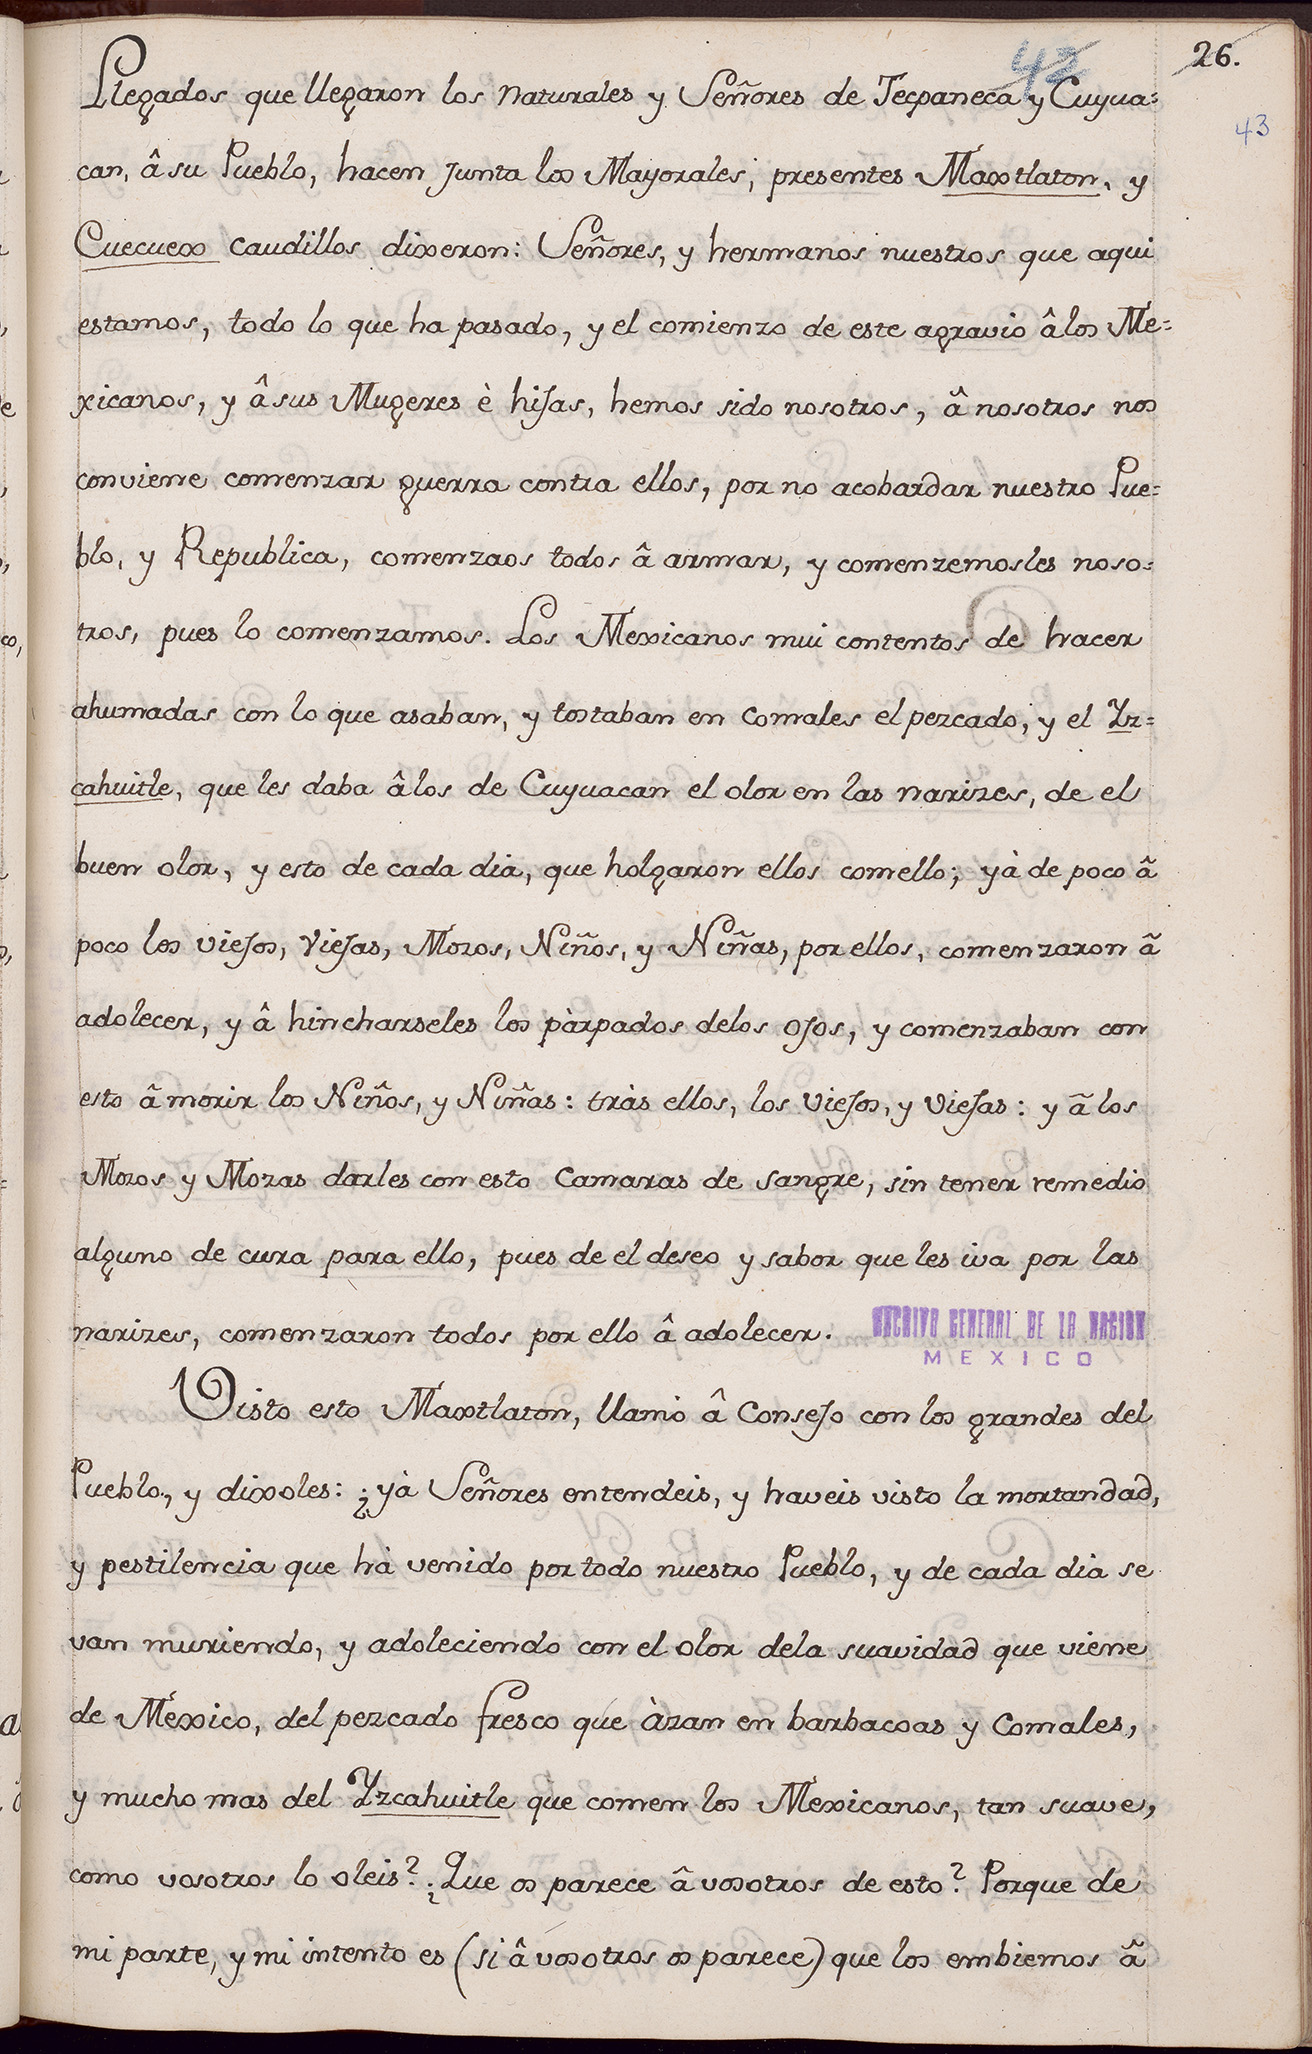 42
26.
43
Llegados que llegaron los naturales y Señores de Tecpaneca y Cuyua=
can, â su Pueblo, hacen Junta los Mayorales; presentes Maxtlaton, y
Cuecuex caudillos dixeron: Señores, y hermanos nuestros que aqui
estamos, todo lo que ha pasado, y el comienzo de este agravio â los Me=
xicanos, y â sus Mugeres è hijas, hemos sido nosotros, â nosotros nos
conviene comenzar guerra contra ellos, por no acobardar nuestro Pue=
blo, y Republica, comenzaos todos â armar, y comenzemosles noso=
tros, pues lo comenzamos. Los Mexicanos mui contentos de hacer
ahumadas con lo que asaban, y tostaban en comales el pezcado, y el Yz=
cahuitle, que les daba â los de Cuyuacan el olor en las narizes, de el
buen olor, y esto de cada dia, que holgaron ellos comello; yà de poco ã
poco los viejos, Viejas, Mozos, Niños, y Niñas, por ellos, comenzaron ã
adolecer, y â hincharseles los pàrpados delos ojos, y comenzaban con
esto ã morir los Niños, y Niñas: tràs ellos, los Viejos, y Viejas: y ã los
Mozos y Mozas darles con esto Camaras de sangre, sin tener remedio
alguno de cura para ello, pues de el deseo y sabor que les iva por las
narizes, comenzaron todos por ello â adolecer.
ARCHIVO GENERAL DE LA NACION
MEXICO
Visto esto Maxtlaton, llamò â Consejo con los grandes del
Pueblo, y dixoles: ¿yà Señores entendeis, y haveis visto la mortandad,
y pestilencia que hà venido por todo nuestro Pueblo, y de cada dia se
van muriendo, y adoleciendo con el olor dela suavidad que viene
de Mexico, del pezcado fresco que àzan en barbacoas y Comales,
y mucho mas del Yzcahuitle que comen los Mexicanos, tan suave,
como vosotros lo oleis? ¿Que os parece â vosotros de esto? Porque de
mi parte, y mi intento es (si â vosotros os parece) que los embiemos ã